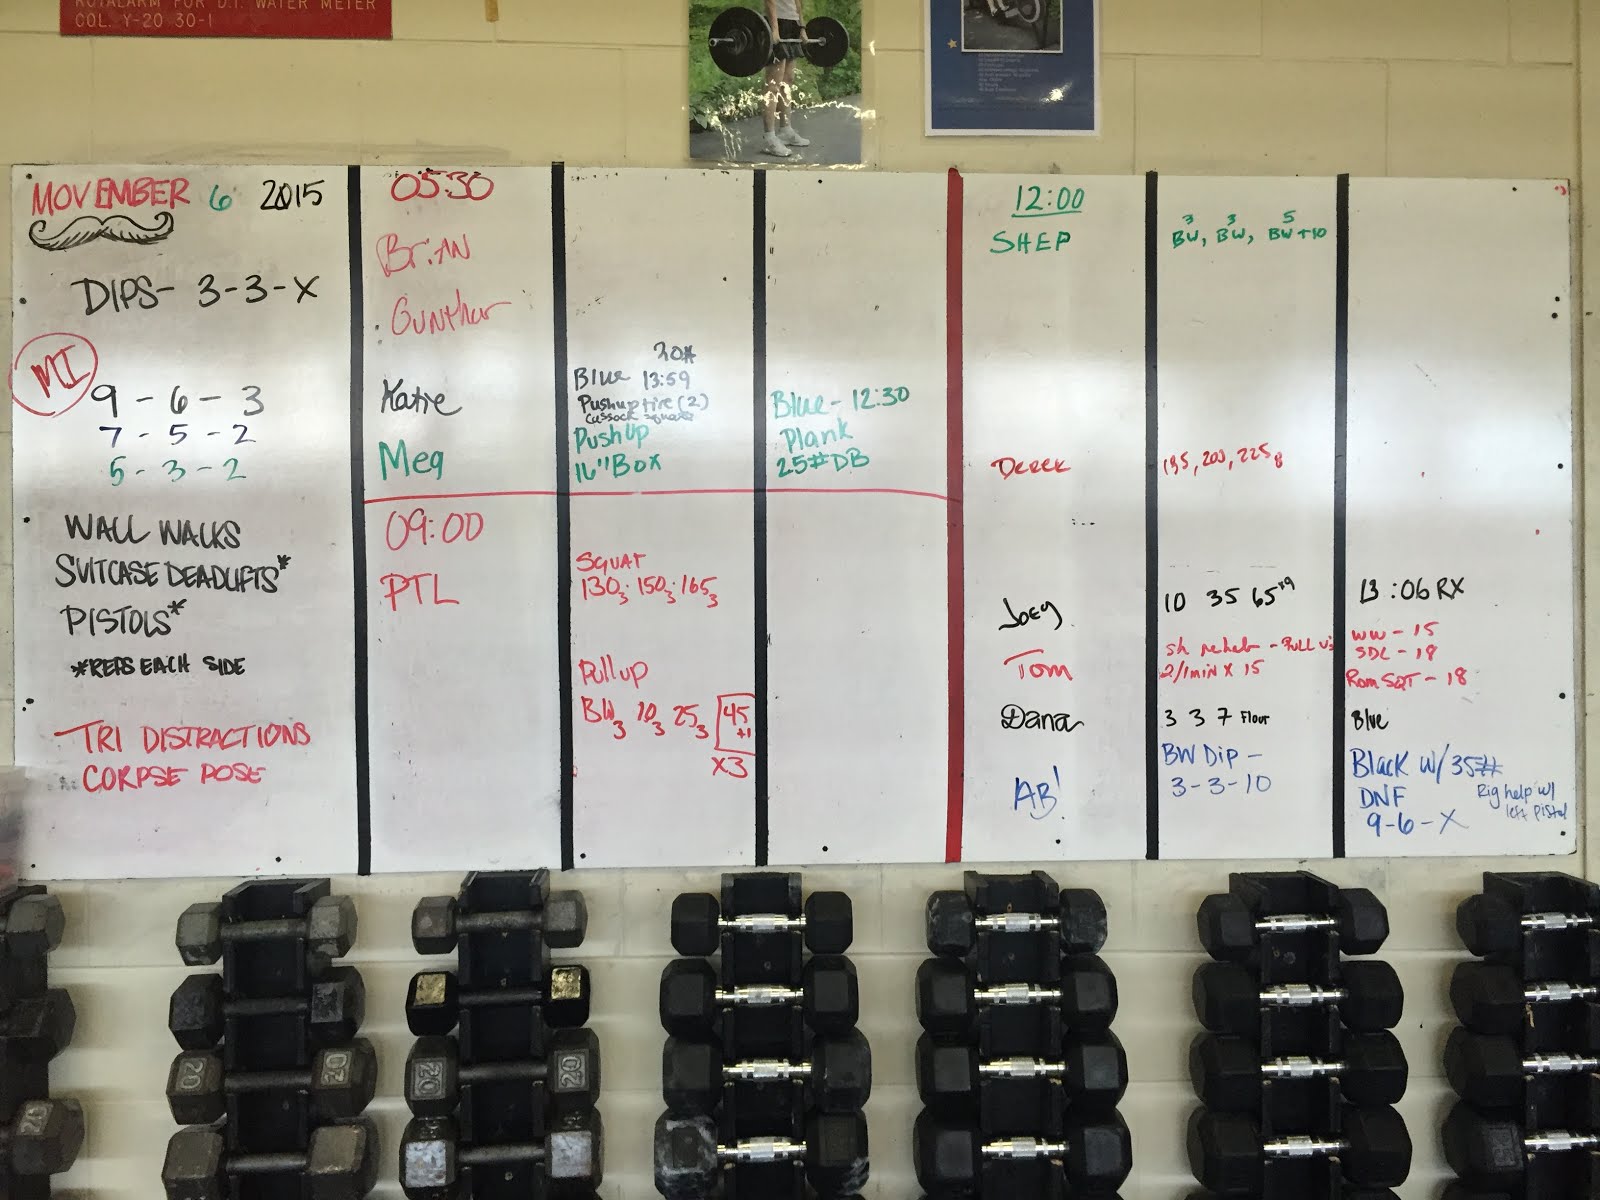 ROTALARM FOR D.I. WATER METER
COL. Y-20 30-1
MOVEMBER 6 2015
DIPS- 3-3-X
MI
9 - 6 - 3
7 - 5 - 2
5 - 3 - 2
WALL WALKS
SUITCASE DEADLIFTS*
PISTOLS*
*REPS EACH SIDE
TRI DISTRACTIONS
CORPSE POSE
05:30
BriAN
Gunthar
Katie
Meg
20#
Blue 13:59
Pushup tire (2)
PushUp
16" Box
Blue - 12:30
Plank
25# DB
09:00
PTL
SQUAT
1303; 150; 1653
Pullup
BW3 103 253 45 +1
X3
12:00
SHEP
3 3 5
BW, BW, BW+10
DEREK
195, 200, 2258
Joey
10 35 65x9
13:06 RX
Tom
sh rehab - PULL
2/1min x 15
WW - 15
SDL - 18
Rom SQT - 18
Dana
3 3 7 Floor
Blue
AB!
BW Dip -
3-3-10
Black w/ 35#
DNF
9-6-X
Rig help w/
left Pistol
20
20
20
20